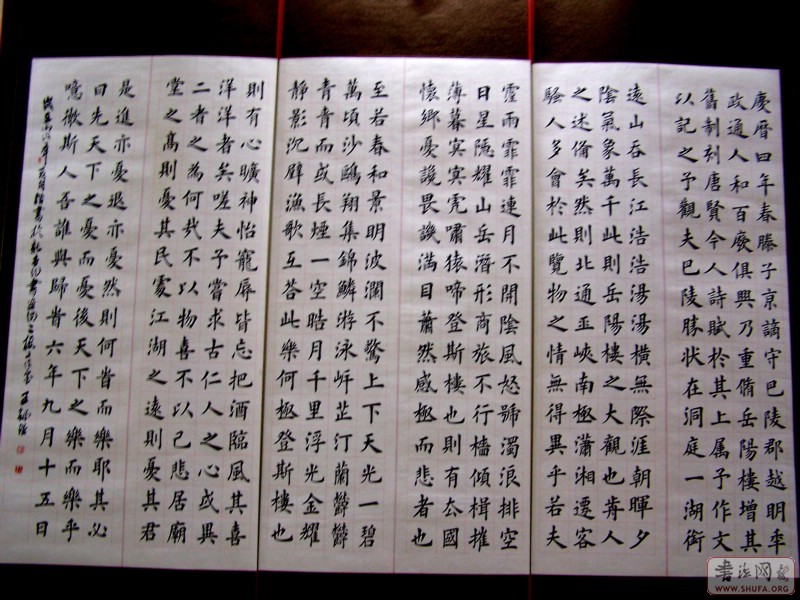 慶曆四年春滕子京謫守巴陵郡越明年
政通人和百廢俱興乃重脩岳陽樓增其
舊制刻唐賢今人詩賦於其上属予作文
以記之予觀夫巴陵勝状在洞庭一湖銜
遠山吞長江浩浩湯湯橫無際涯朝暉夕
陰氣象萬千此則岳陽樓之大觀也前人
之述備矣然則北通巫峽南極瀟湘遷客
騷人多會於此覽物之情無得異乎若夫
霪雨霏霏連月不開陰風怒號濁浪排空
日星隱耀山岳潛形商旅不行檣傾楫摧
薄暮冥冥虎嘯猿啼登斯樓也則有去國
懷鄉憂讒畏譏滿目蕭然感極而悲者也
至若春和景明波瀾不驚上下天光一碧
萬頃沙鷗翔集錦鱗游泳岸芷汀蘭鬱鬱
青青而或長煙一空皓月千里浮光金耀
靜影沉璧漁歌互答此樂何極登斯樓也
則有心曠神怡寵辱皆忘把酒臨風其喜
洋洋者矣嗟夫予嘗求古仁人之心或異
二者之為何哉不以物喜不以己悲居廟
堂之高則憂其民處江湖之遠則憂其君
是進亦憂退亦憂然則何旹而樂耶其必
曰先天下之憂而憂後天下之樂而樂乎
噫微斯人吾誰與歸旹六年九月十五日
書法网
WWW.SHUFA.ORG